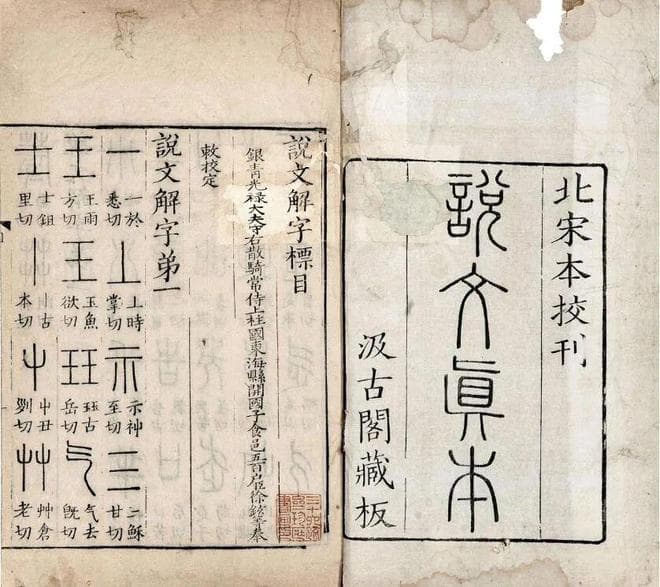 北宋本挍刊
說文眞本
汲古閣藏板
說文解字標目
銀青光禄大夫守右散騎常侍上柱國東海縣開國子食邑五百戶臣徐鉉等奉
敕校定
說文解字第一
一 一於悉切 上 上時掌切 示 示神至切 三 三穌甘切
王 王雨方切 王 玉魚欲切 玨 玨古岳切 气 气去旣切
士 士鉏里切 丨 丨古本切 屮 屮丑列切 艸 艸倉老切